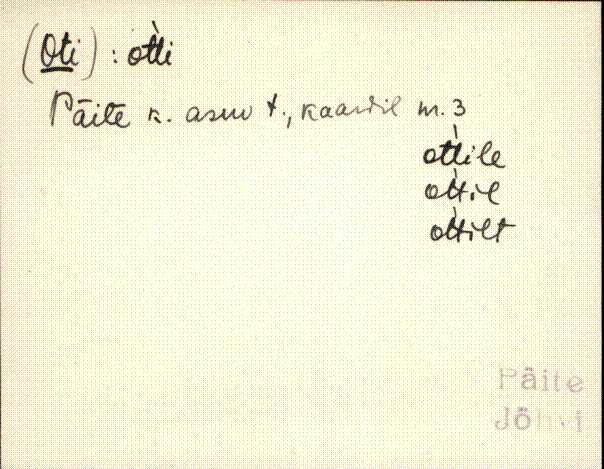 (Oti) : ot̀ti
Päite k. asuv t., kaardil nr. 3
ot̀tile
ot̀til
ot̀tilt
Päite
Jõhvi